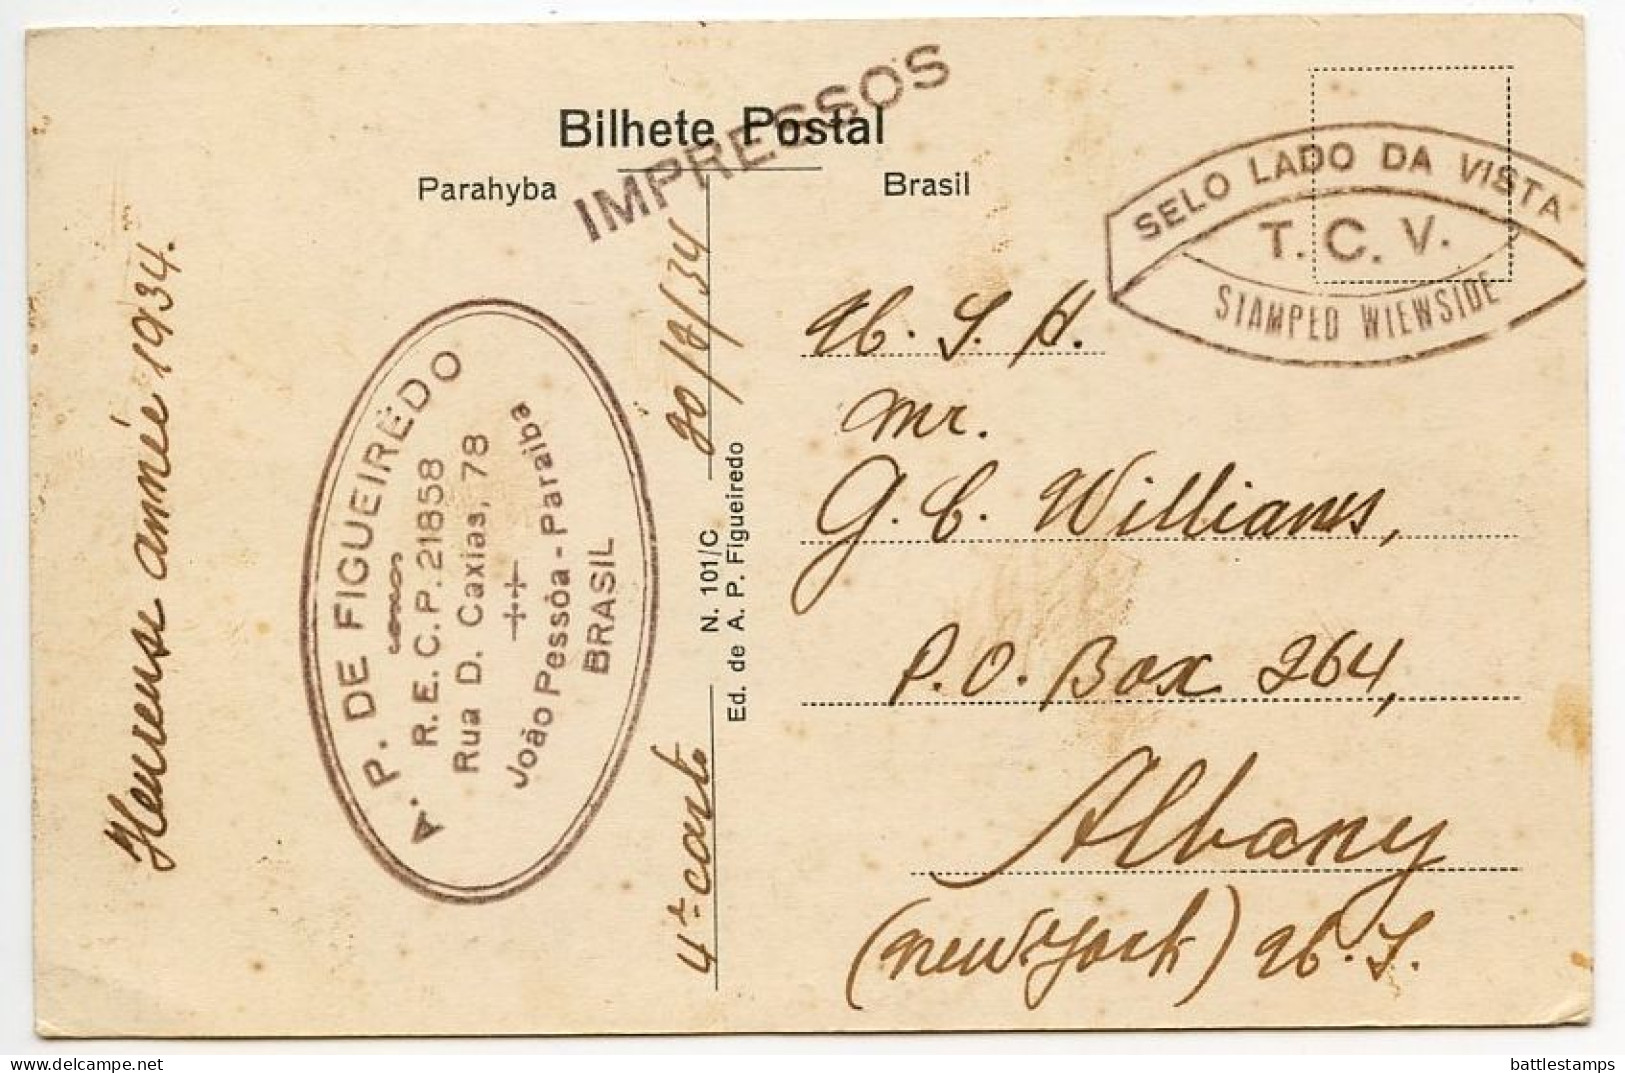 Bilhete Postal
IMPRESSOS
Parahyba
Brasil
SELO LADO DA VISTA
T. C. V.
STAMPED WIEWSIDE
Heureuse année 1934.
A. P. DE FIGUEIRÊDO
R. E. C. P. 21858
Rua D. Caxias, 78
João Pessôa - Paraiba
BRASIL
4t carto
N. 101/C
Ed. de A. P. Figueiredo
Mr.
G. C. Williams,
P.O. Box 264,
Albany
(New York) U. S.
delcampe.net
battlestamps